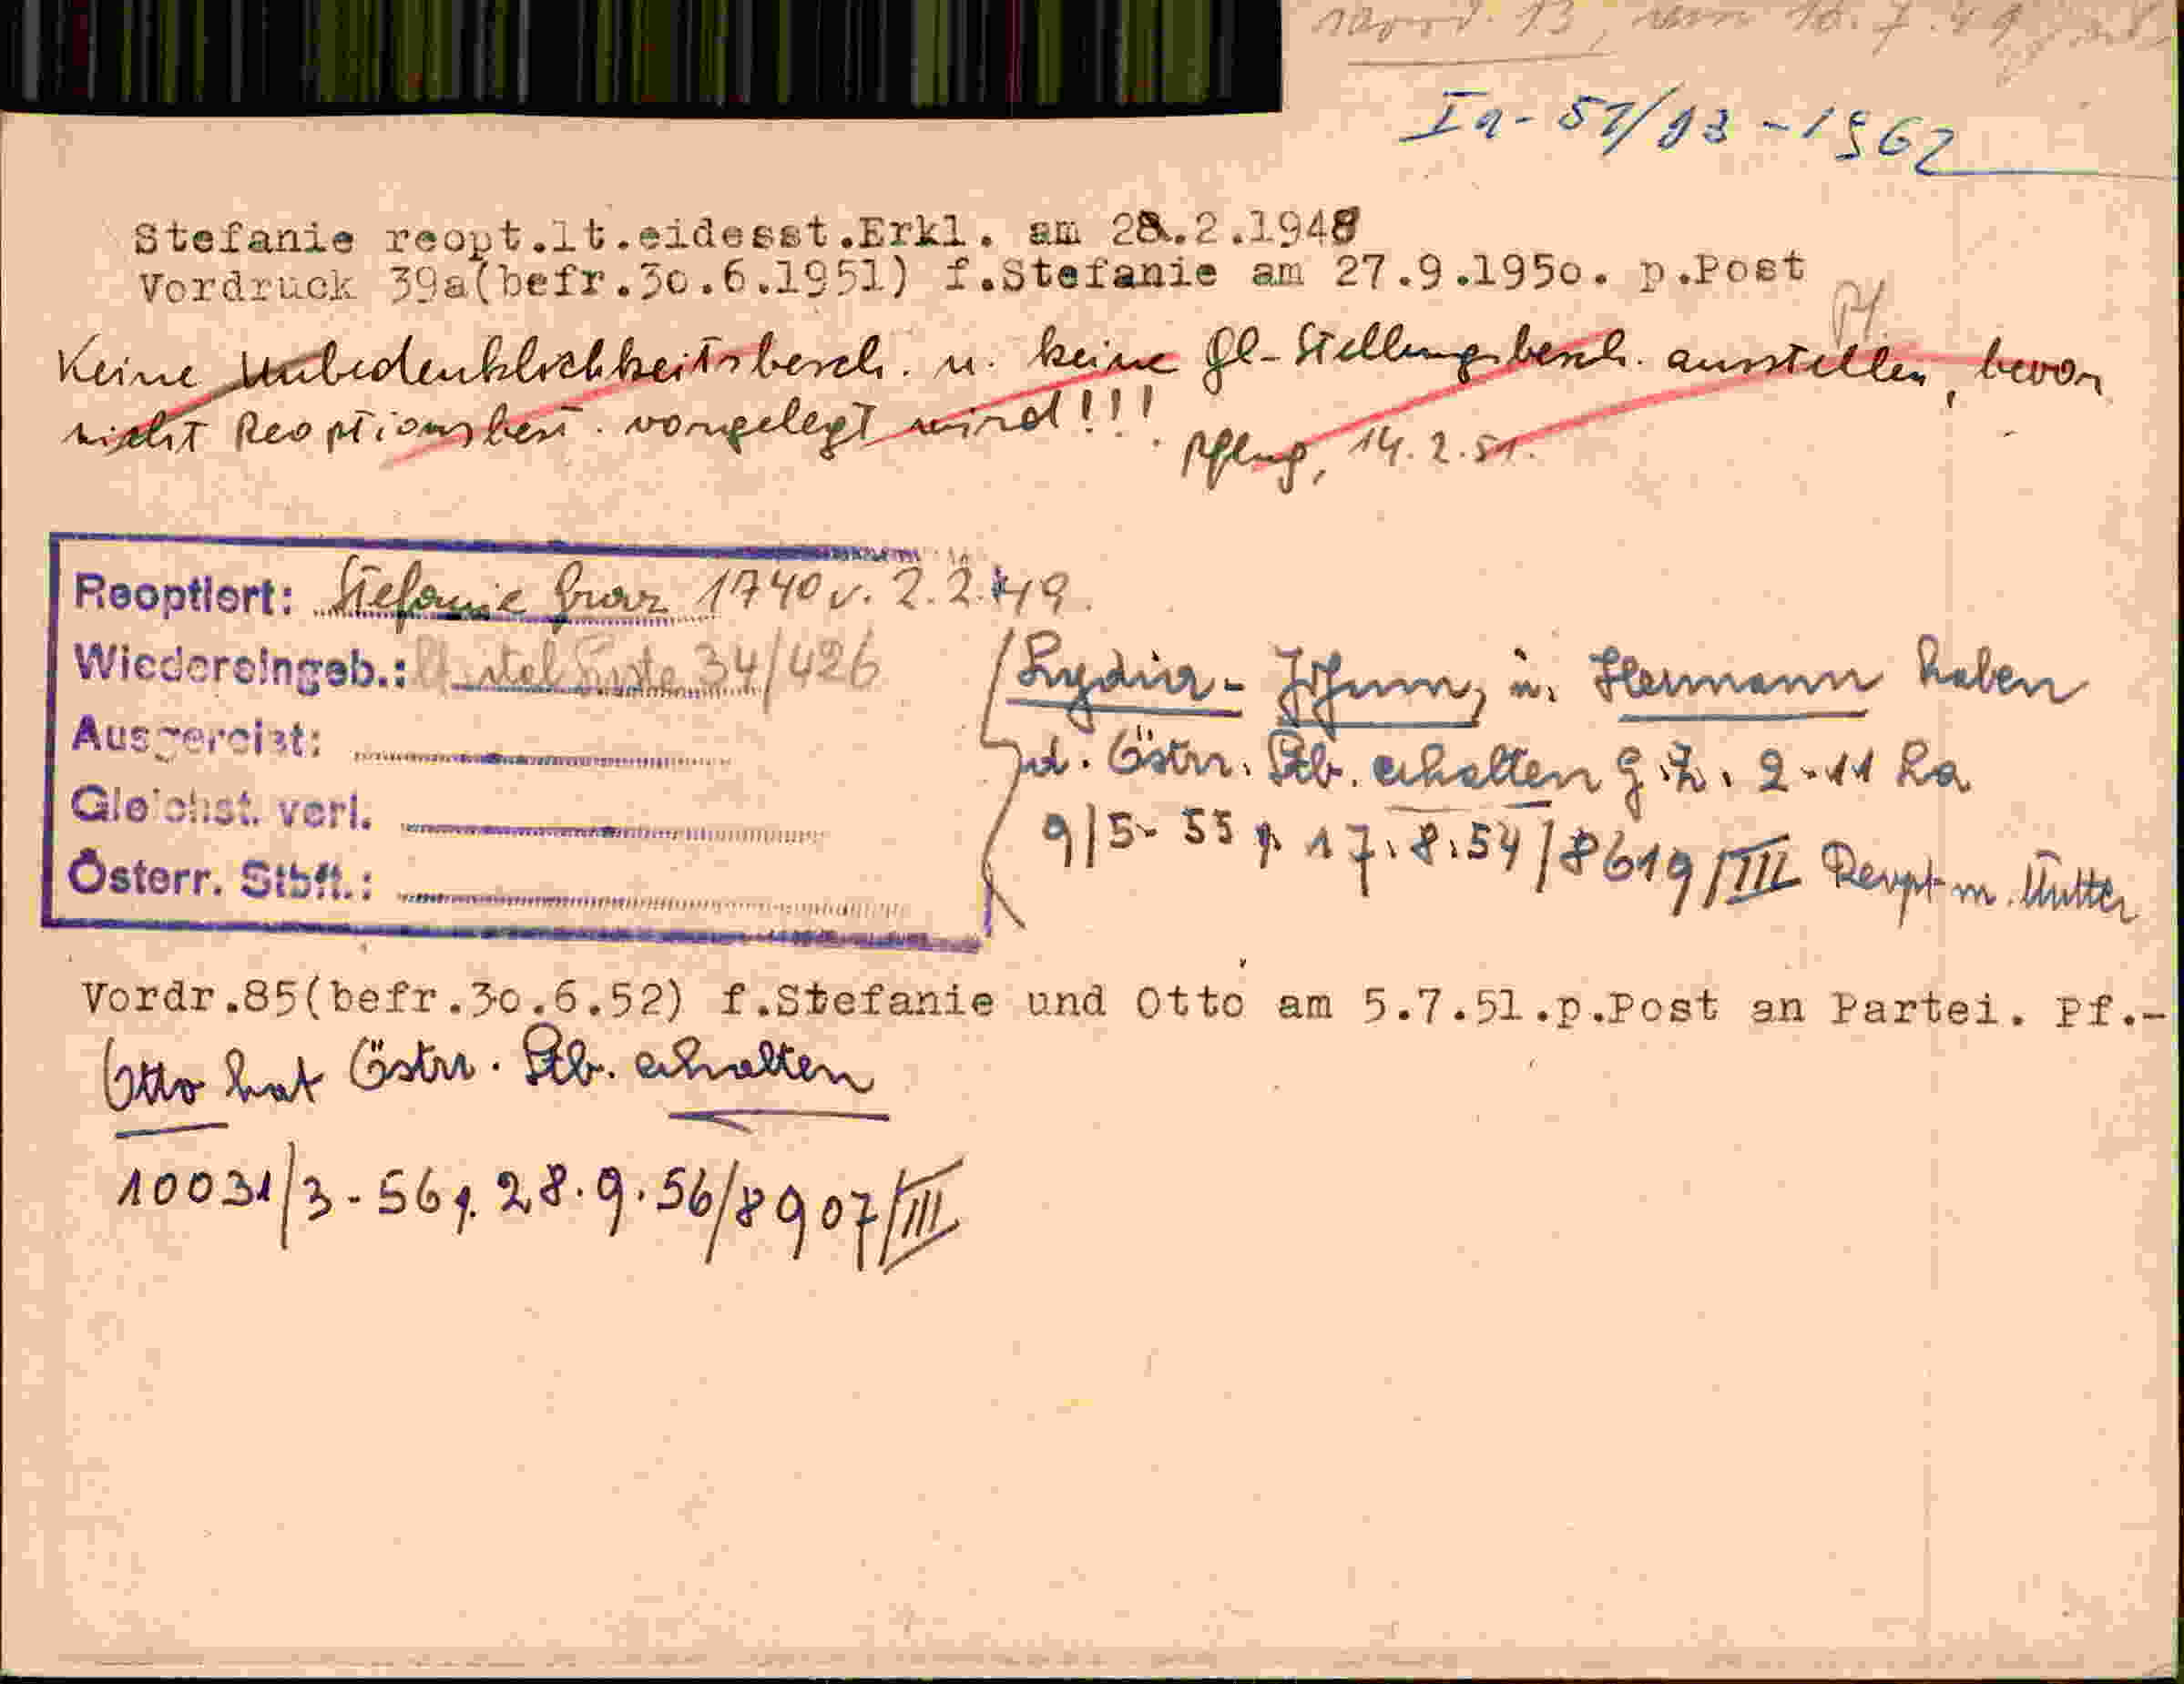 13, vom 16.7.49
Ia-57/93-1962
Stefanie reopt.lt.eidesst.Erkl. am 28.2.1948
Vordruck 39a(befr.30.6.1951) f.Stefanie am 27.9.1950. p.Post
Pf.
Keine Unbedenklichkeitsbesch. u. keine Gl-Stellungsbesch. ausstellen, bevor
nicht Reoptionsbest. vorgelegt wird!!!
Pflug, 14.2.51.
Reoptiert: Stefanie Graz 1740 v. 2.2.49.
Wiedereingeb.: Liste 34/426
Ausgereist:
Gleichst. verl.
Österr. Stbft.:
Lydia - Johann, u. Hermann haben
d. Östr. Stb. erhalten G.Z. 2-11 La
9/5-55 v. 17.8.54/8619/III Reopt m. Mutter
Vordr.85(befr.30.6.52) f.Stefanie und Otto am 5.7.51.p.Post an Partei. Pf.-
Otto hat Östr. Stb. erhalten
10031/3-56 v. 28.9.56/8907/III